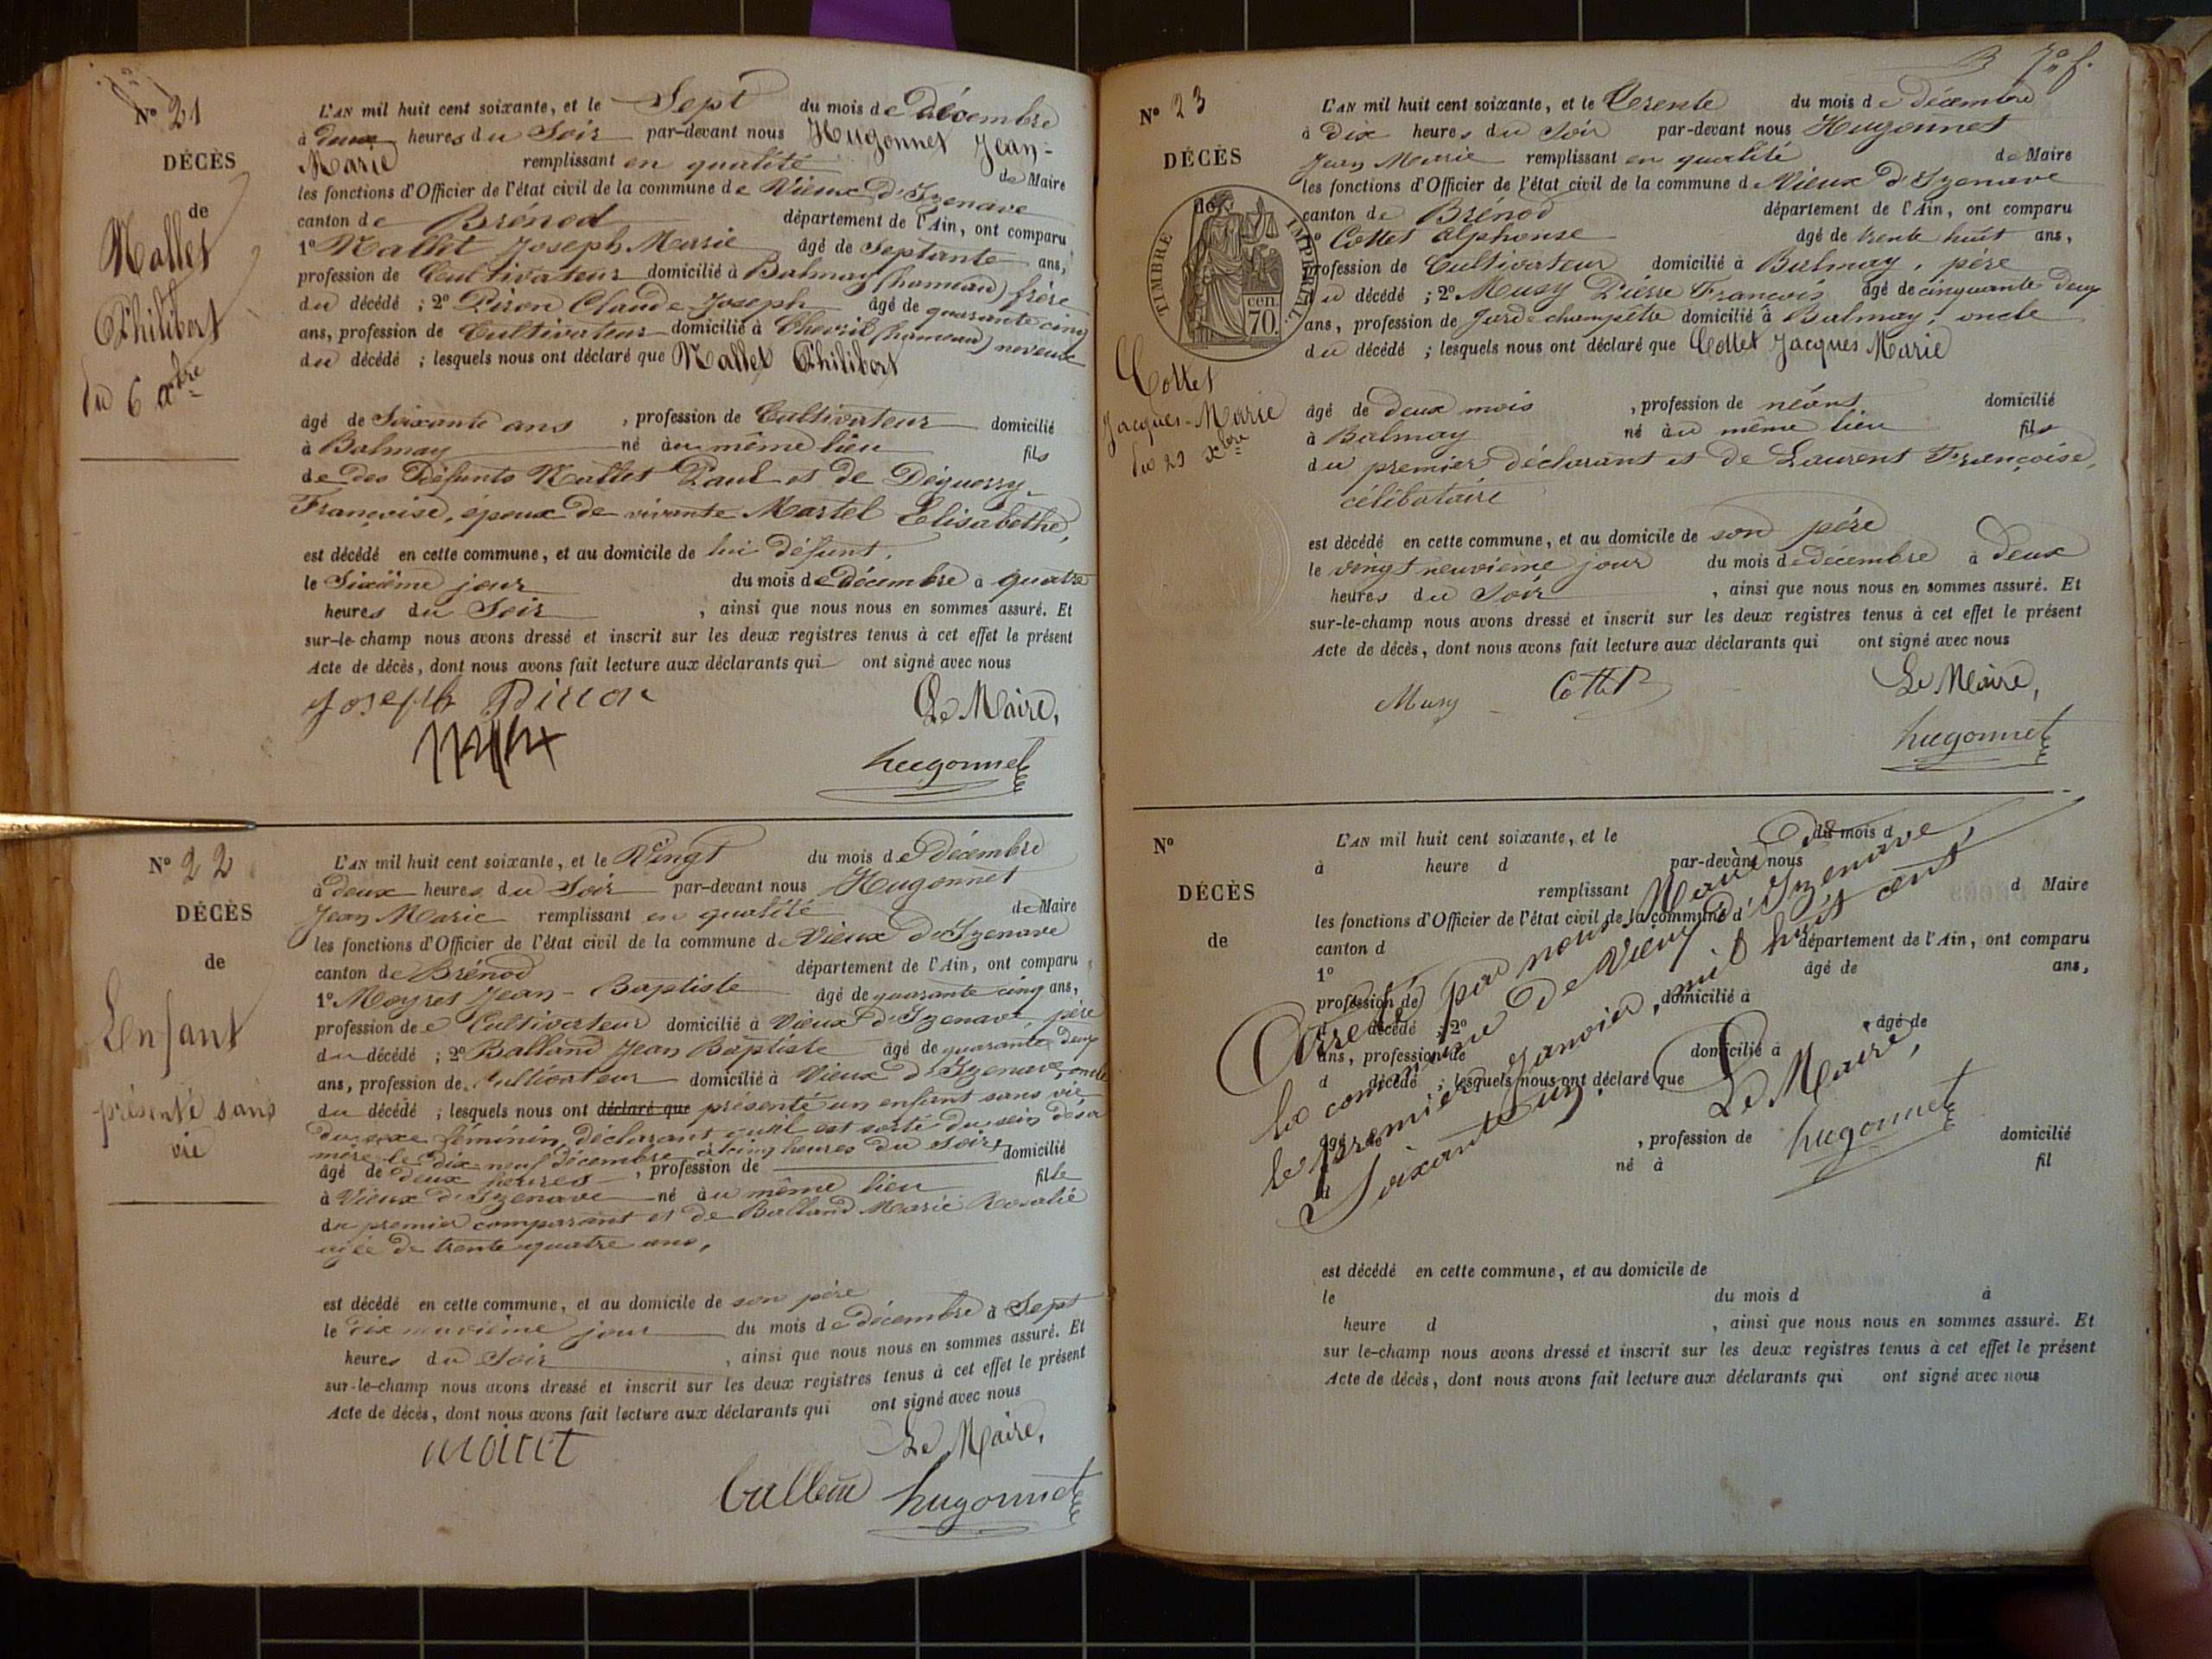 N° 21
DÉCÈS
de
Mallet
Philibert
du 6 xbre
L'AN mil huit cent soixante, et le Sept du mois de Décembre
à deux heures du Soir par-devant nous Hugonnet Jean-
Marie remplissant en qualité de Maire
les fonctions d'Officier de l'état civil de la commune de Vieux d'Izenave
canton de Brénod département de l'Ain, ont comparu
1° Mallet Joseph Marie âgé de Septante ans,
profession de Cultivateur domicilié à Balmay (hameau) frère
du décédé ; 2° Piron Claude Joseph âgé de quarante cinq
ans, profession de Cultivateur domicilié à Chevril (hameau) neveux
du décédé ; lesquels nous ont déclaré que Mallet Philibert
âgé de Soixante ans , profession de Cultivateur domicilié
à Balmay né au même lieu fils
de des Défunts Mallet Paul et de
Françoise, époux de vivante Martel Elisabethe,
est décédé en cette commune, et au domicile de lui défunt.
le Sixième jour du mois de décembre à quatre
heures du Soir , ainsi que nous nous en sommes assuré. Et
sur-le-champ nous avons dressé et inscrit sur les deux registres tenus à cet effet le présent
Acte de décès, dont nous avons fait lecture aux déclarants qui ont signé avec nous
Joseph Piron
Le Maire,
hugonnet
N° 22
DÉCÈS
de
Lenfant
présenté sans
vie
L'AN mil huit cent soixante, et le Vingt du mois de Décembre
à deux heures du Soir par-devant nous Hugonnet
Jean Marie remplissant en qualité de Maire
les fonctions d'Officier de l'état civil de la commune de Vieux d'Izenave
canton de Brénod département de l'Ain, ont comparu
1° Moyret Jean-Baptiste âgé de quarante cinq ans,
profession de Cultivateur domicilié à Vieux d'Izenave, père
du décédé ; 2° Balland Jean Baptiste âgé de quarante deux
ans, profession de Cultivateur domicilié à Vieux d'Izenave, oncle
du décédé ; lesquels nous ont déclaré que présenté un enfant sans vie
du sexe féminin, déclarant qu'il est sorti du sein de sa
mère le dix neuf décembre à cinq heures du soir, domicilié
âgé de deux heures , profession de
à Vieux d'Izenave né au même lieu fille
du premier comparant et de Balland Marie Rosalie
agée de trente quatre ans,
est décédé en cette commune, et au domicile de son père
le dix neuvième jour du mois de décembre à Sept
heures du Soir , ainsi que nous nous en sommes assuré. Et
sur-le-champ nous avons dressé et inscrit sur les deux registres tenus à cet effet le présent
Acte de décès, dont nous avons fait lecture aux déclarants qui ont signé avec nous
Le Maire,
hugonnet
N° 23
DÉCÈS
de
TIMBRE IMPÉRIAL
70 cen.
Cottet
Jacques-Marie
du 29 xbre
L'AN mil huit cent soixante, et le Trente du mois de Décembre
à dix heures du Soir par-devant nous Hugonnet
Jean Marie remplissant en qualité de Maire
les fonctions d'Officier de l'état civil de la commune de Vieux d'Izenave
canton de Brénod département de l'Ain, ont comparu
1° Cottet Alphonse âgé de trente huit ans,
profession de Cultivateur domicilié à Balmay, père
du décédé ; 2° Musy Pierre François âgé de cinquante deux
ans, profession de Garde champêtre domicilié à Balmay, oncle
du décédé ; lesquels nous ont déclaré que Cottet Jacques Marie
âgé de deux mois , profession de néant domicilié
à Balmay né au même lieu fils
du premier déclarant et de Laurent Françoise,
célibataire
est décédé en cette commune, et au domicile de son père
le vingt neuvième jour du mois de décembre à deux
heures du Soir , ainsi que nous nous en sommes assuré. Et
sur-le-champ nous avons dressé et inscrit sur les deux registres tenus à cet effet le présent
Acte de décès, dont nous avons fait lecture aux déclarants qui ont signé avec nous
Musy Cottet
Le Maire,
hugonnet
N°
DÉCÈS
de
L'AN mil huit cent soixante, et le du mois d
à heure d par-devant nous
remplissant d Maire
les fonctions d'Officier de l'état civil de la commune d
canton d département de l'Ain, ont comparu
1° âgé de ans,
profession de domicilié à
d décédé ; 2° âgé de
ans, profession de domicilié à
d décédé ; lesquels nous ont déclaré que
âgé de , profession de domicilié
à né à fil
d
Arrêté par nous Maire de
la commune de Vieux d'Izenave,
le premier Janvier, mil huit cent
Soixante un.
Le Maire,
hugonnet
est décédé en cette commune, et au domicile de
le du mois d à
heure d , ainsi que nous nous en sommes assuré. Et
sur le-champ nous avons dressé et inscrit sur les deux registres tenus à cet effet le présent
Acte de décès, dont nous avons fait lecture aux déclarants qui ont signé avec nous